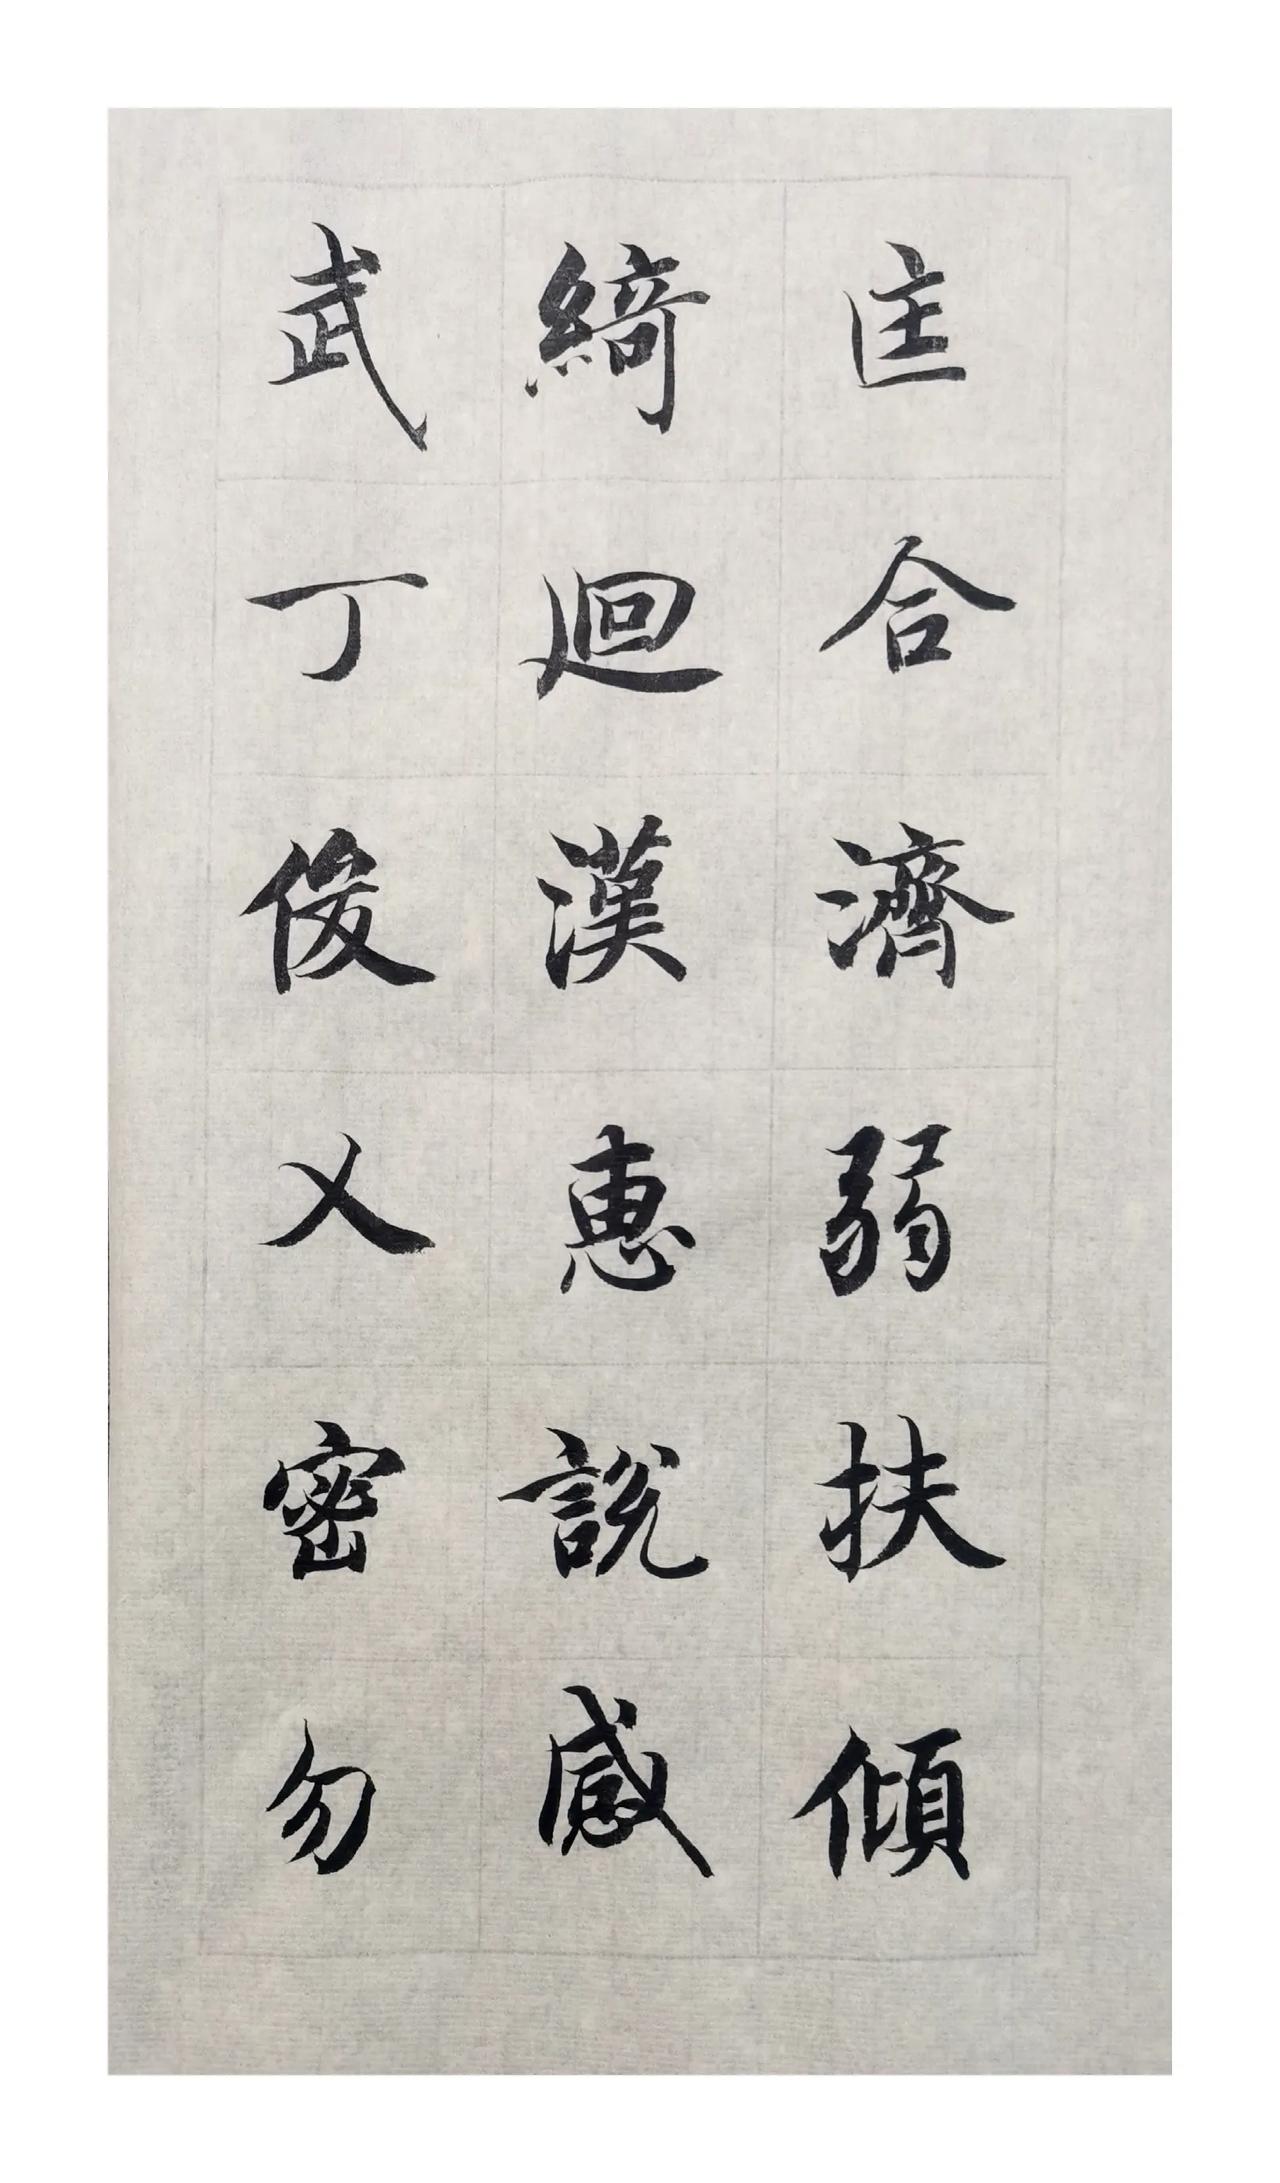 匡合濟弱扶傾
綺迴漢惠説感
武丁俊乂密勿